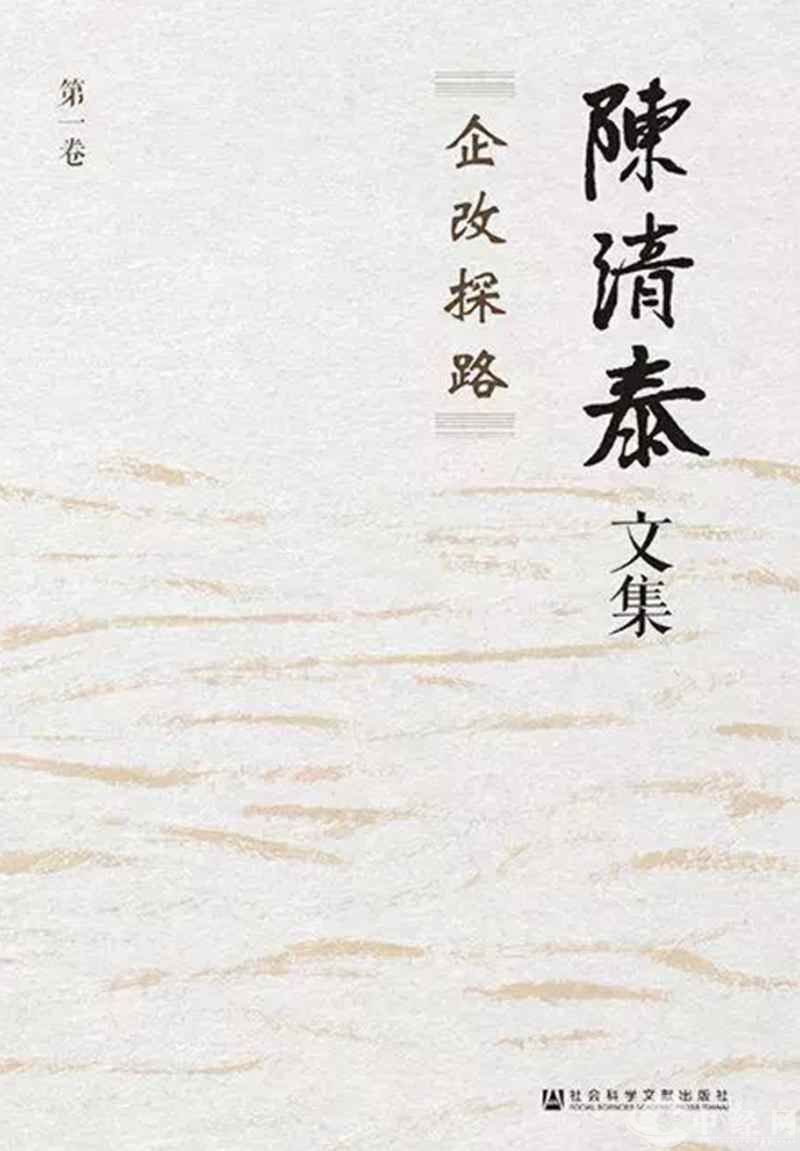 陳清泰
文集
企改探路
第一卷
社会科学文献出版社
SOCIAL SCIENCES ACADEMIC PRESS (CHINA)
中经网